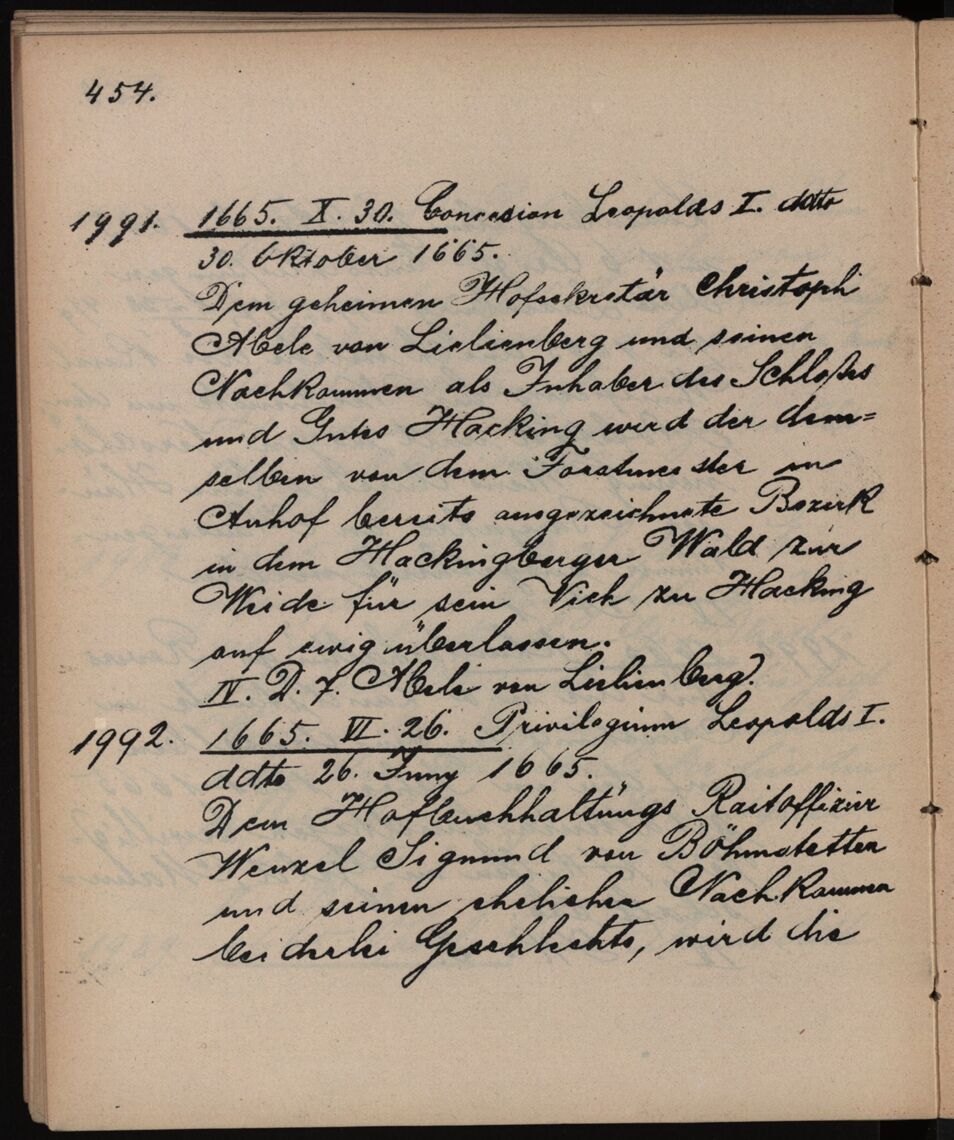 454.
1991. 1665. X. 30. Concesion Leopolds I. ddto
30. Oktober 1665.
Dem geheimen Hofsekretär Christoph
Abele von Lielienberg und seinen
Nachkommen als Inhaber des Schloßes
und Gutes Hacking wird der dem=
selben von dem Forstmeister in
Auhof bereits ausgezeichnete Bezirk
in dem Hackingberger Wald zur
Weide für sein Vieh zu Hacking
auf ewig überlassen.
IV. D. 7. Abele von Lielienberg).
1992. 1665. VI. 26. Privilegium Leopolds I.
ddto 26. Juny 1665.
Dem Hofbuchhaltungs Raitoffizier
Wenzel Sigmund von Böhmstetten
und seinen ehelichen Nachkommen
beiderlei Geschlechts, wird die